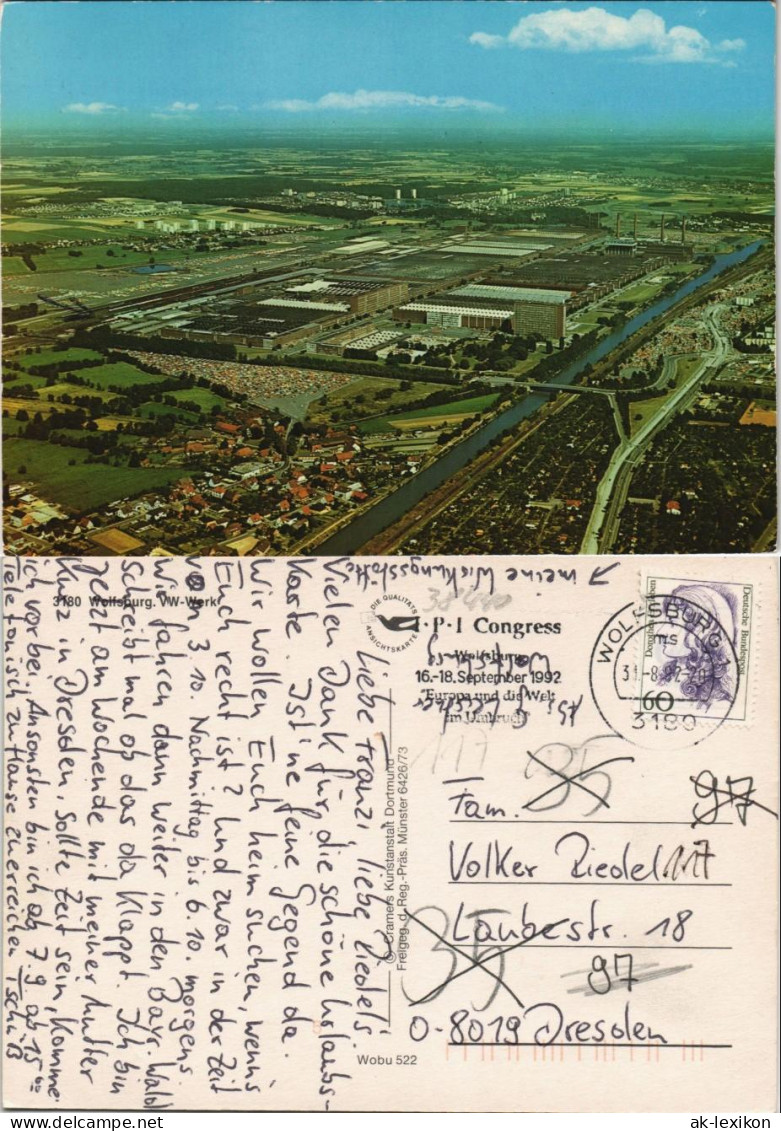 3180 Wolfsburg. VW-Werk
DIE QUALITÄTS
ANSICHTSKARTE
→ meine Wirkungsstätte
Liebe Franzi, liebe Riedels!
Vielen Dank für die schöne Urlaubs-
Karte. Ist 'ne feine Gegend da.
Wir wollen Euch heim suchen, wenns
Euch recht ist? Und zwar in der Zeit
von 3.10. Nachmittag bis 6.10. morgens.
Wir fahren dann weiter in den Bayr. Wald
Schreibt mal ob das da klappt. Ich bin
jetzt am Wochende mit meiner Mutter
kurz in Dresden, sollte Zeit sein, komme
ich vorbei. Ansonsten bin ich ab 7.9. ab 15⁰⁰
Telefonisch zu Hause zu erreichen Tschüß
© Cramers Kunstanstalt Dortmund
Freigeg. d. Reg.-Präs. Münster 6426/73
Wobu 522
I·P·I Congress
Wolfsburg
16.-18. September 1992
"Europa und die Welt
im Umbruch"
WOLFSBURG
ms
31.-8.92-20
3180
Deutsche Bundespost
60
117
35
97
Fam.
Volker Riedel 117
Laubestr. 18
35
97
O-8019 Dresden
ak-lexikon